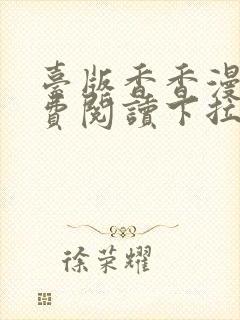 臺版香香漫
費閱讀下拉
徐荣耀